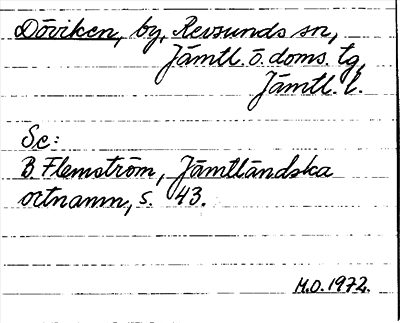 Döviken, by, Revsunds sn,
Jämtl. ö. doms. tg,
Jämtl. l.
Se:
B Flemström, Jämtländska
ortnamn, s. 43.
M.O. 1972.